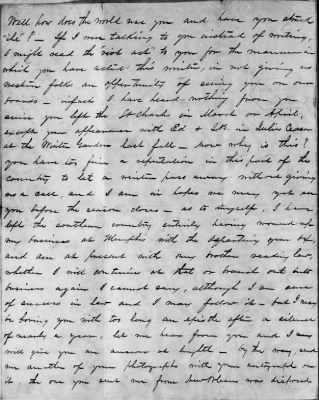 Well how does the world use you and have you stood
it? — If I was talking to you instead of writing,
I might read the riot act to you for the manner in
which you have acted this winter, in not giving us
western folks an opportunity of seeing you on our
boards — in fact I have heard nothing from you
since you left the St Charles in March or April,
except your appearance with Ed & in Julius Ceaser
at the Winter Garden last fall — Now why is this?
you have too fine a reputation in this part of the
country to let a winter pass away without giving
us a call, and I am in hopes we may yet see
you before the season closes — as to myself, I have
left the southern country entirely having wound up
my business at Memphis with the departing year
and am at present with my brother reading law,
whether I will continue at that or branch out into
business again I cannot say, although I am sure
of success in law and I may follow it — but I may
be boring you with too long an epistle after a silence
of nearly a year, let me hear from you and I
will give you an answer at length — by the way, send
me another of your photographs with your autograph on
it the one you sent me from New Orleans was disposed